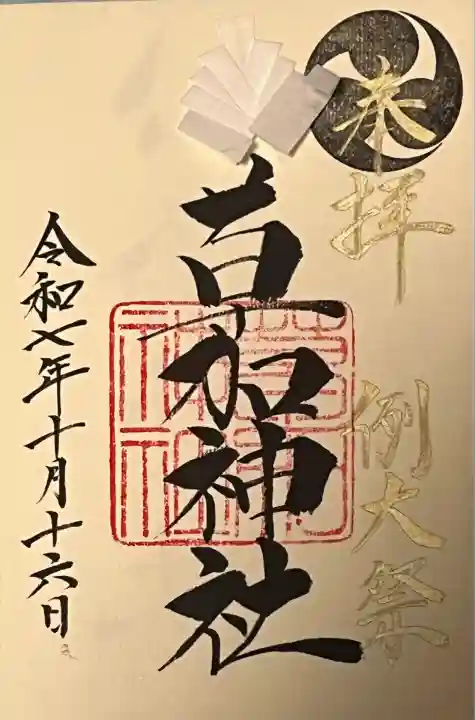 奉拝 例大祭
草加神社
令和七年十月十六日